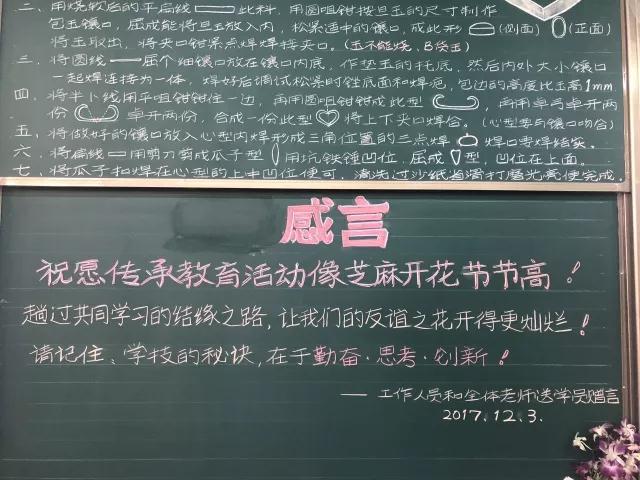 二、用烧软后的平后线 此料，用圆咀钳按旦玉的尺寸制作
包玉镶口，屈成能将旦玉放入内，松紧适中的镶口，成此形 (侧面) (正面)
将玉取出，将夹口钳紧点焊焊接夹口。(玉不能烧，B货玉)
三、将圆线 屈个细镶口放在镶口内底，作垫玉的托底，然后内外大小镶口
一起焊连接为一体，焊好后调试松紧时锉底面和焊疤，包边的高度比玉高1mm
四、将半卜线用平咀钳钳住一边，再用圆咀钳钳成此型 ，再用卓弓卓开两
份 卓开两份，合成一份此型 将上下夹口焊合。(心型要与镶口吻合)
五、将做好的镶口放入心型内焊形成三角位置的三点焊 焊口要焊结实。
六、将扁线 用剪刀剪成瓜子型 用坑铁锤凹位，屈成 型，凹位在上面。
七、将瓜子扣焊在心型的上中凹位便可，清洗过沙纸 打磨光亮便完成。
感言
祝愿传承教育活动像芝麻开花节节高！
趟过共同学习的结缘之路，让我们的友谊之花开得更灿烂！
请记住、学技的秘诀，在于勤奋·思考·创新！
—— 工作人员和全体老师送学员赠言
2017.12.3.